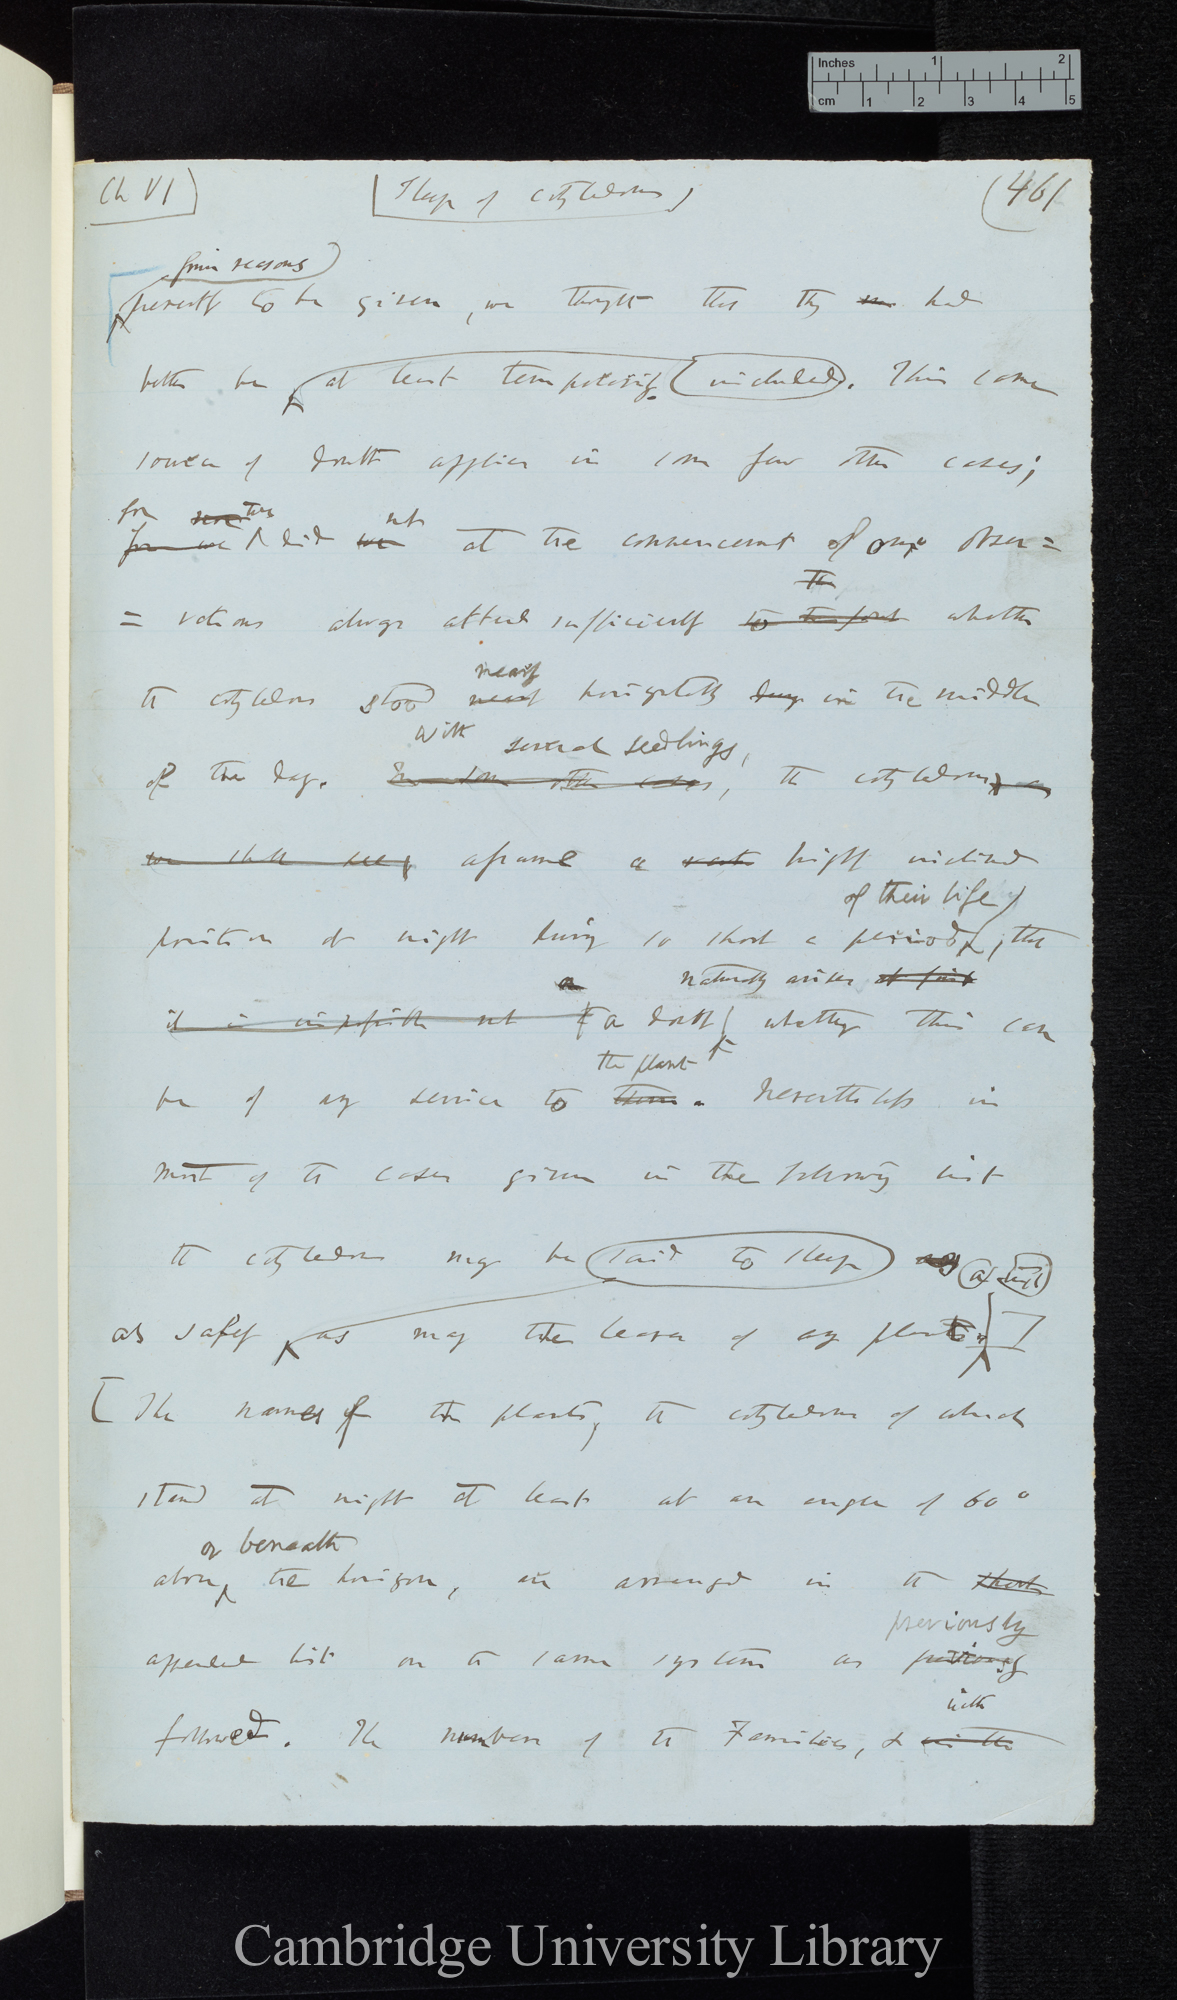 Inches 1 2
cm 1 2 3 4 5
Ch VI
Sleep of cotyledons
(461
from reasons
presently to be given, we thought that they had
better be at least temporarily included. This same
source of doubt applies in some few other cases;
for two not
for we did we at the commencement of our obser=
The
= vations always attend sufficiently to the fact whether
nearly
the cotyledons stood nearly horizontally in the middle
with several seedlings,
of the day. In some other cases, the cotyledons, as
we shall see, assume a highly inclined
of their life
position at night during so short a period, that
a naturally arises at first
it is impossible not a doubt whether this can
the plant
be of any service to them. Nevertheless in
most of the cases given in the following list
the cotyledons may be said to sleep
at night
as safely as may the leaves of any plant.
The names of the plants, the cotyledons of which
stand at night at least at an angle of 60°
or beneath
above the horizon, are arranged in the
previously
appended list on the same system as previously
with
followed. The numbers of the Families, & in the
Cambridge University Library